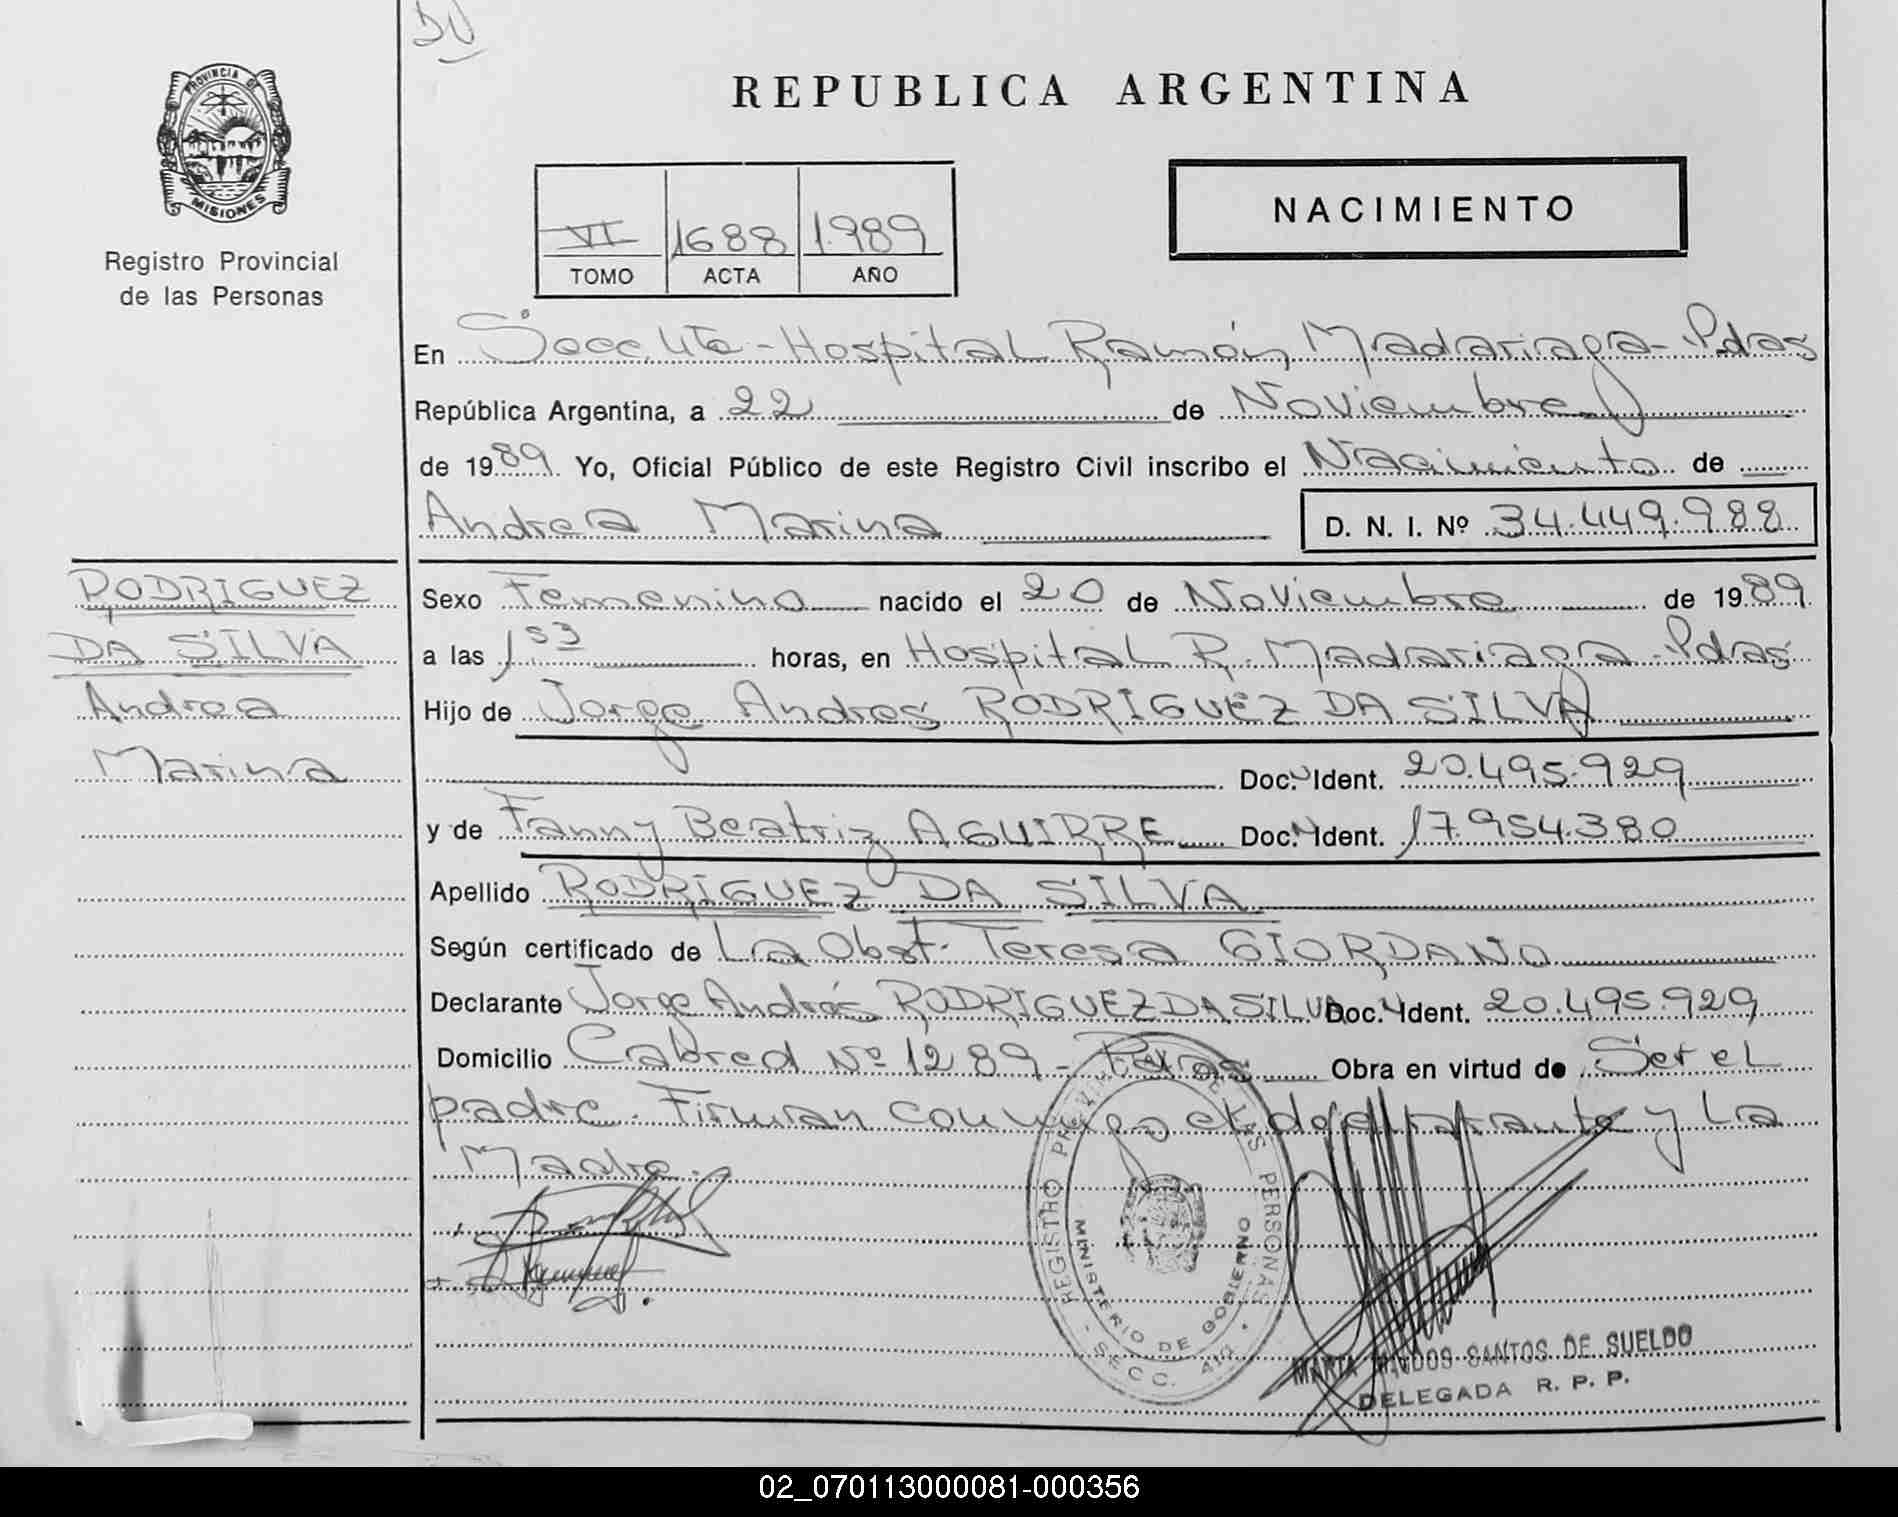 DU
PROVINCIA DE
MISIONES
Registro Provincial
de las Personas
REPUBLICA ARGENTINA
VI 1688 1.989
TOMO ACTA AÑO
NACIMIENTO
En Secc. 4ta - Hospital Ramón Madariaga - Pdas
República Argentina, a 22 de Noviembre
de 1989. Yo, Oficial Público de este Registro Civil inscribo el Nacimiento de
Andrea Marina D. N. I. Nº 34.449.988
RODRIGUEZ
DA SILVA
Andrea
Marina
Sexo Femenino nacido el 20 de Noviembre de 1989
a las 1 53 horas, en Hospital R. Madariaga - Pdas
Hijo de Jorge Andres RODRIGUEZ DA SILVA
Doc. Ident. 20.495.929
y de Fanny Beatriz AGUIRRE Doc. Ident. 17.954.380
Apellido RODRIGUEZ DA SILVA
Según certificado de La Obst. Teresa GIORDANO
Declarante Jorge Andrés RODRIGUEZ DA SILVA Doc. Ident. 20.495.929
Domicilio Cabred Nº 1289 - Pdas Obra en virtud de Ser el
padre. Firman conmigo el declarante y La
Madre.
REGISTRO PROVINCIAL DE LAS PERSONAS
MINISTERIO DE GOBIERNO
SECC. 4ta
MARTA SANTOS DE SUELDO
DELEGADA R. P. P.
02_070113000081-000356